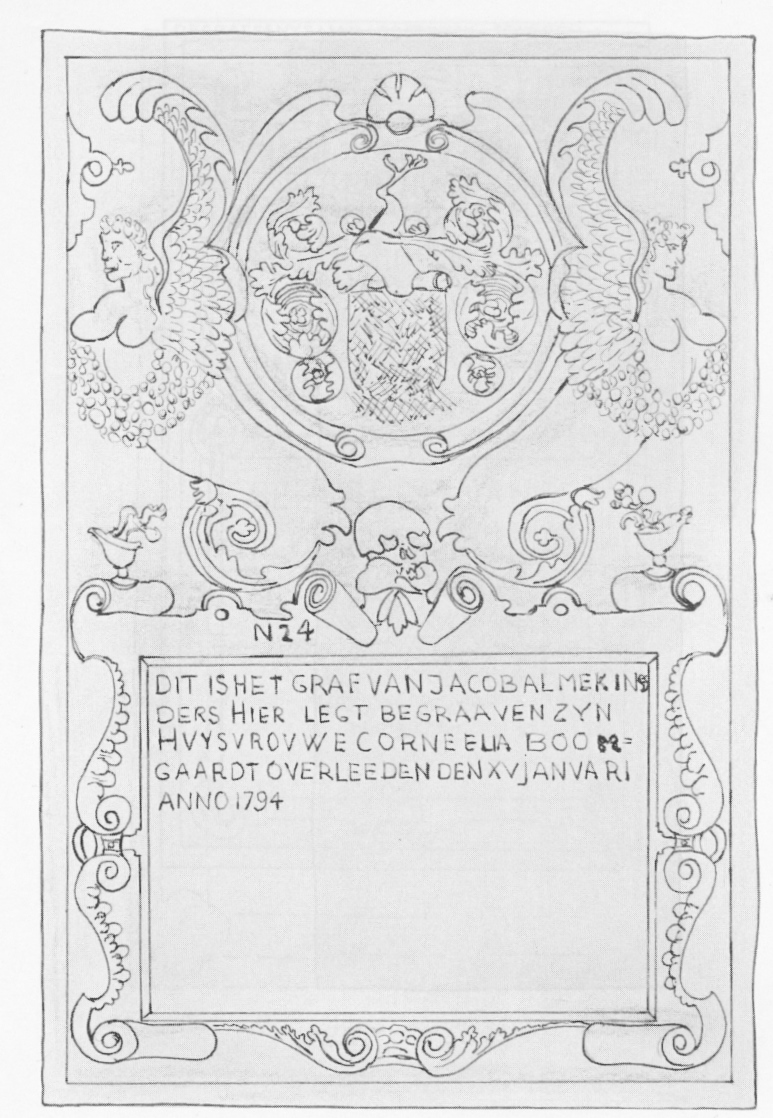 N24
DIT IS HET GRAF VAN JACOB ALMEKINS
DERS HIER LEGT BEGRAAVEN ZYN
HVYSVROVWE CORNEELIA BOOM=
GAARDT OVERLEEDEN DEN XV JANVARI
ANNO 1794